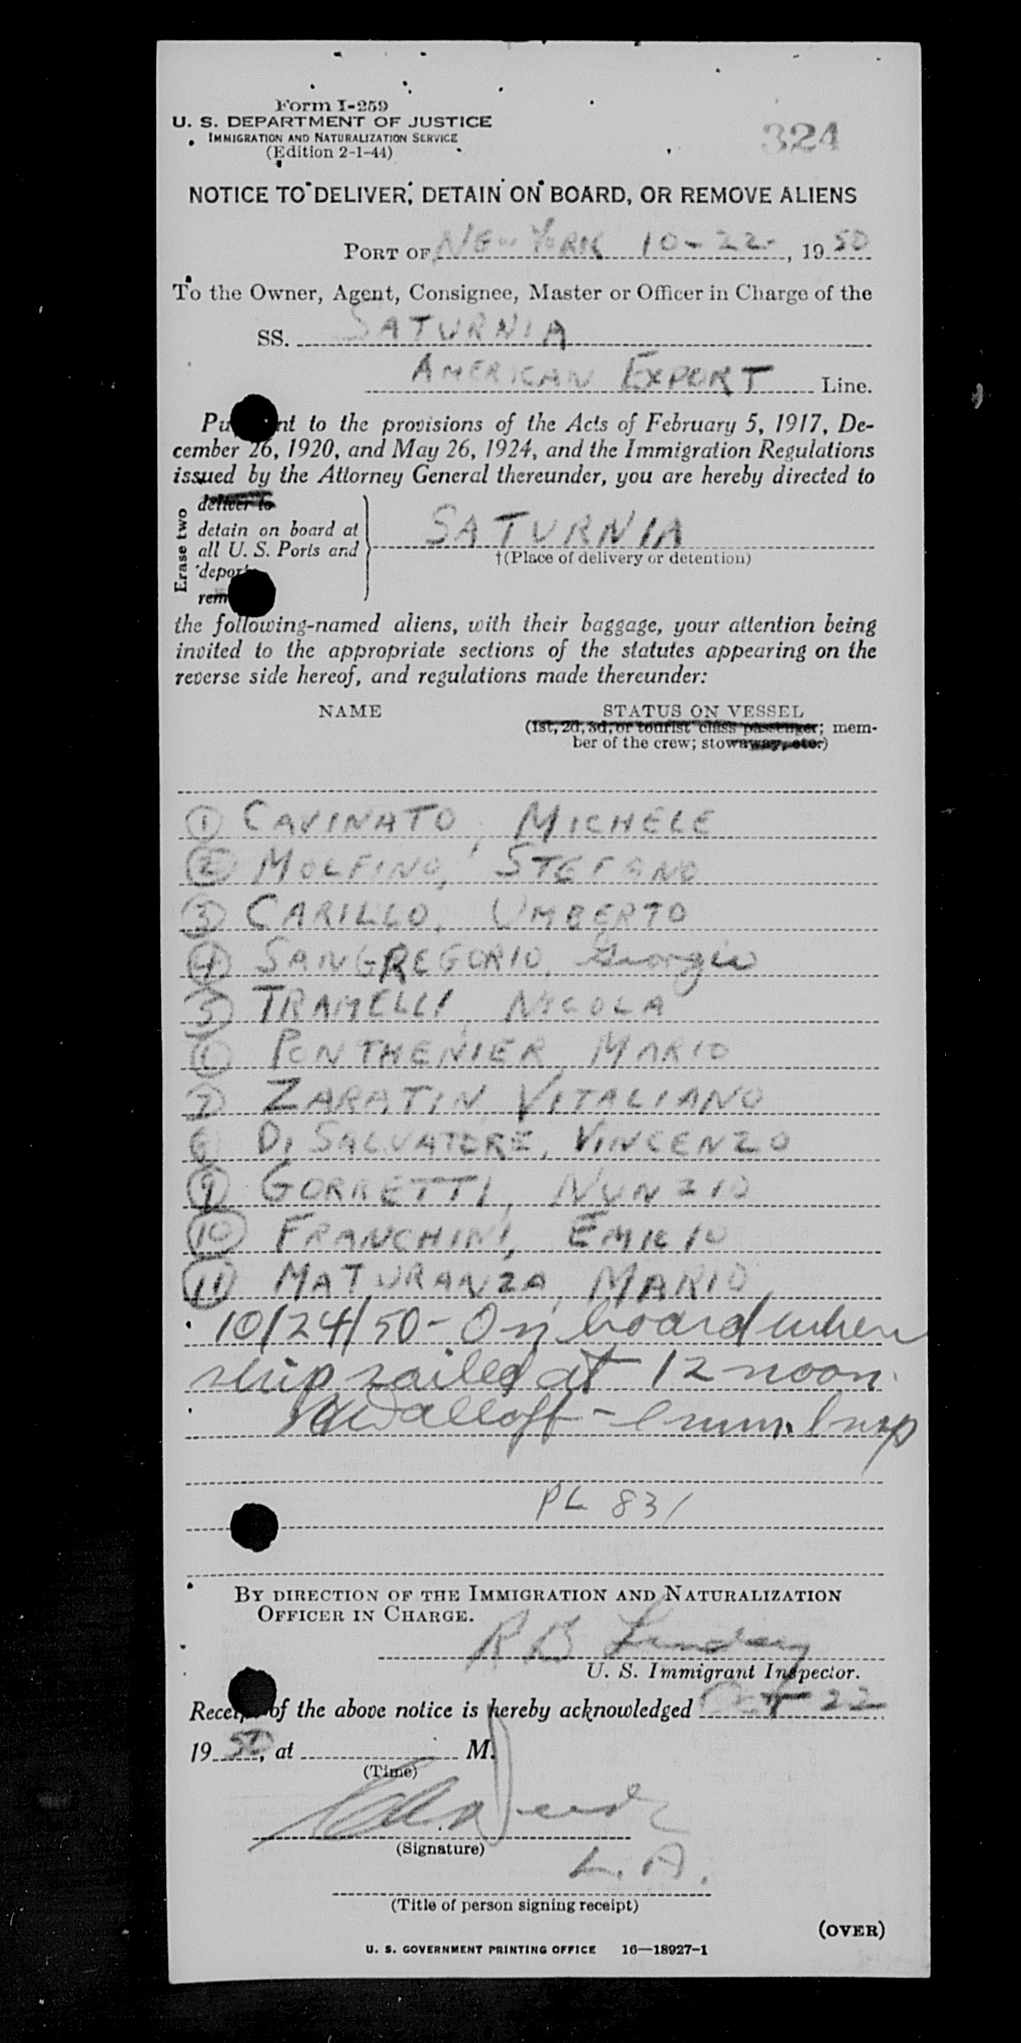 Form I-259
U. S. DEPARTMENT OF JUSTICE
IMMIGRATION AND NATURALIZATION SERVICE
(Edition 2-1-44)
324
NOTICE TO DELIVER, DETAIN ON BOARD, OR REMOVE ALIENS
PORT OF NEW YORK 10-22-, 1950
To the Owner, Agent, Consignee, Master or Officer in Charge of the
SS. SATURNIA
AMERICAN EXPORT Line.
Pu nt to the provisions of the Acts of February 5, 1917, De-
cember 26, 1920, and May 26, 1924, and the Immigration Regulations
issued by the Attorney General thereunder, you are hereby directed to
Erase two
deliver to
detain on board at
all U. S. Ports and
depor
rem
SATURNIA
†(Place of delivery or detention)
the following-named aliens, with their baggage, your attention being
invited to the appropriate sections of the statutes appearing on the
reverse side hereof, and regulations made thereunder:
NAME STATUS ON VESSEL
(1st, 2d, 3d, or tourist class passenger; mem-
ber of the crew; stowaway, etc.)
1 CAVINATO, MICHELE
2 MOLFINO, STEFANO
3 CARILLO, UMBERTO
4 SANGREGORIO, Giorgio
5 TRAMELLI, NICOLA
6 PONTHENIER MARIO
7 ZARATIN VITALIANO
8 DI SALVATORE, VINCENZO
9 GORRETTI, NUNZIO
10 FRANCHINI, EMILIO
11 MATURANZA, MARIO
10/24/50 - On board when
ship sailed at 12 noon.
Imm. Insp
PL 831
BY DIRECTION OF THE IMMIGRATION AND NATURALIZATION
OFFICER IN CHARGE.
R B Lindsey
U. S. Immigrant Inspector.
Receipt of the above notice is hereby acknowledged Oct 22
1950, at M.
(Time)
(Signature)
L. A.
(Title of person signing receipt)
(OVER)
U. S. GOVERNMENT PRINTING OFFICE 16—18927-1